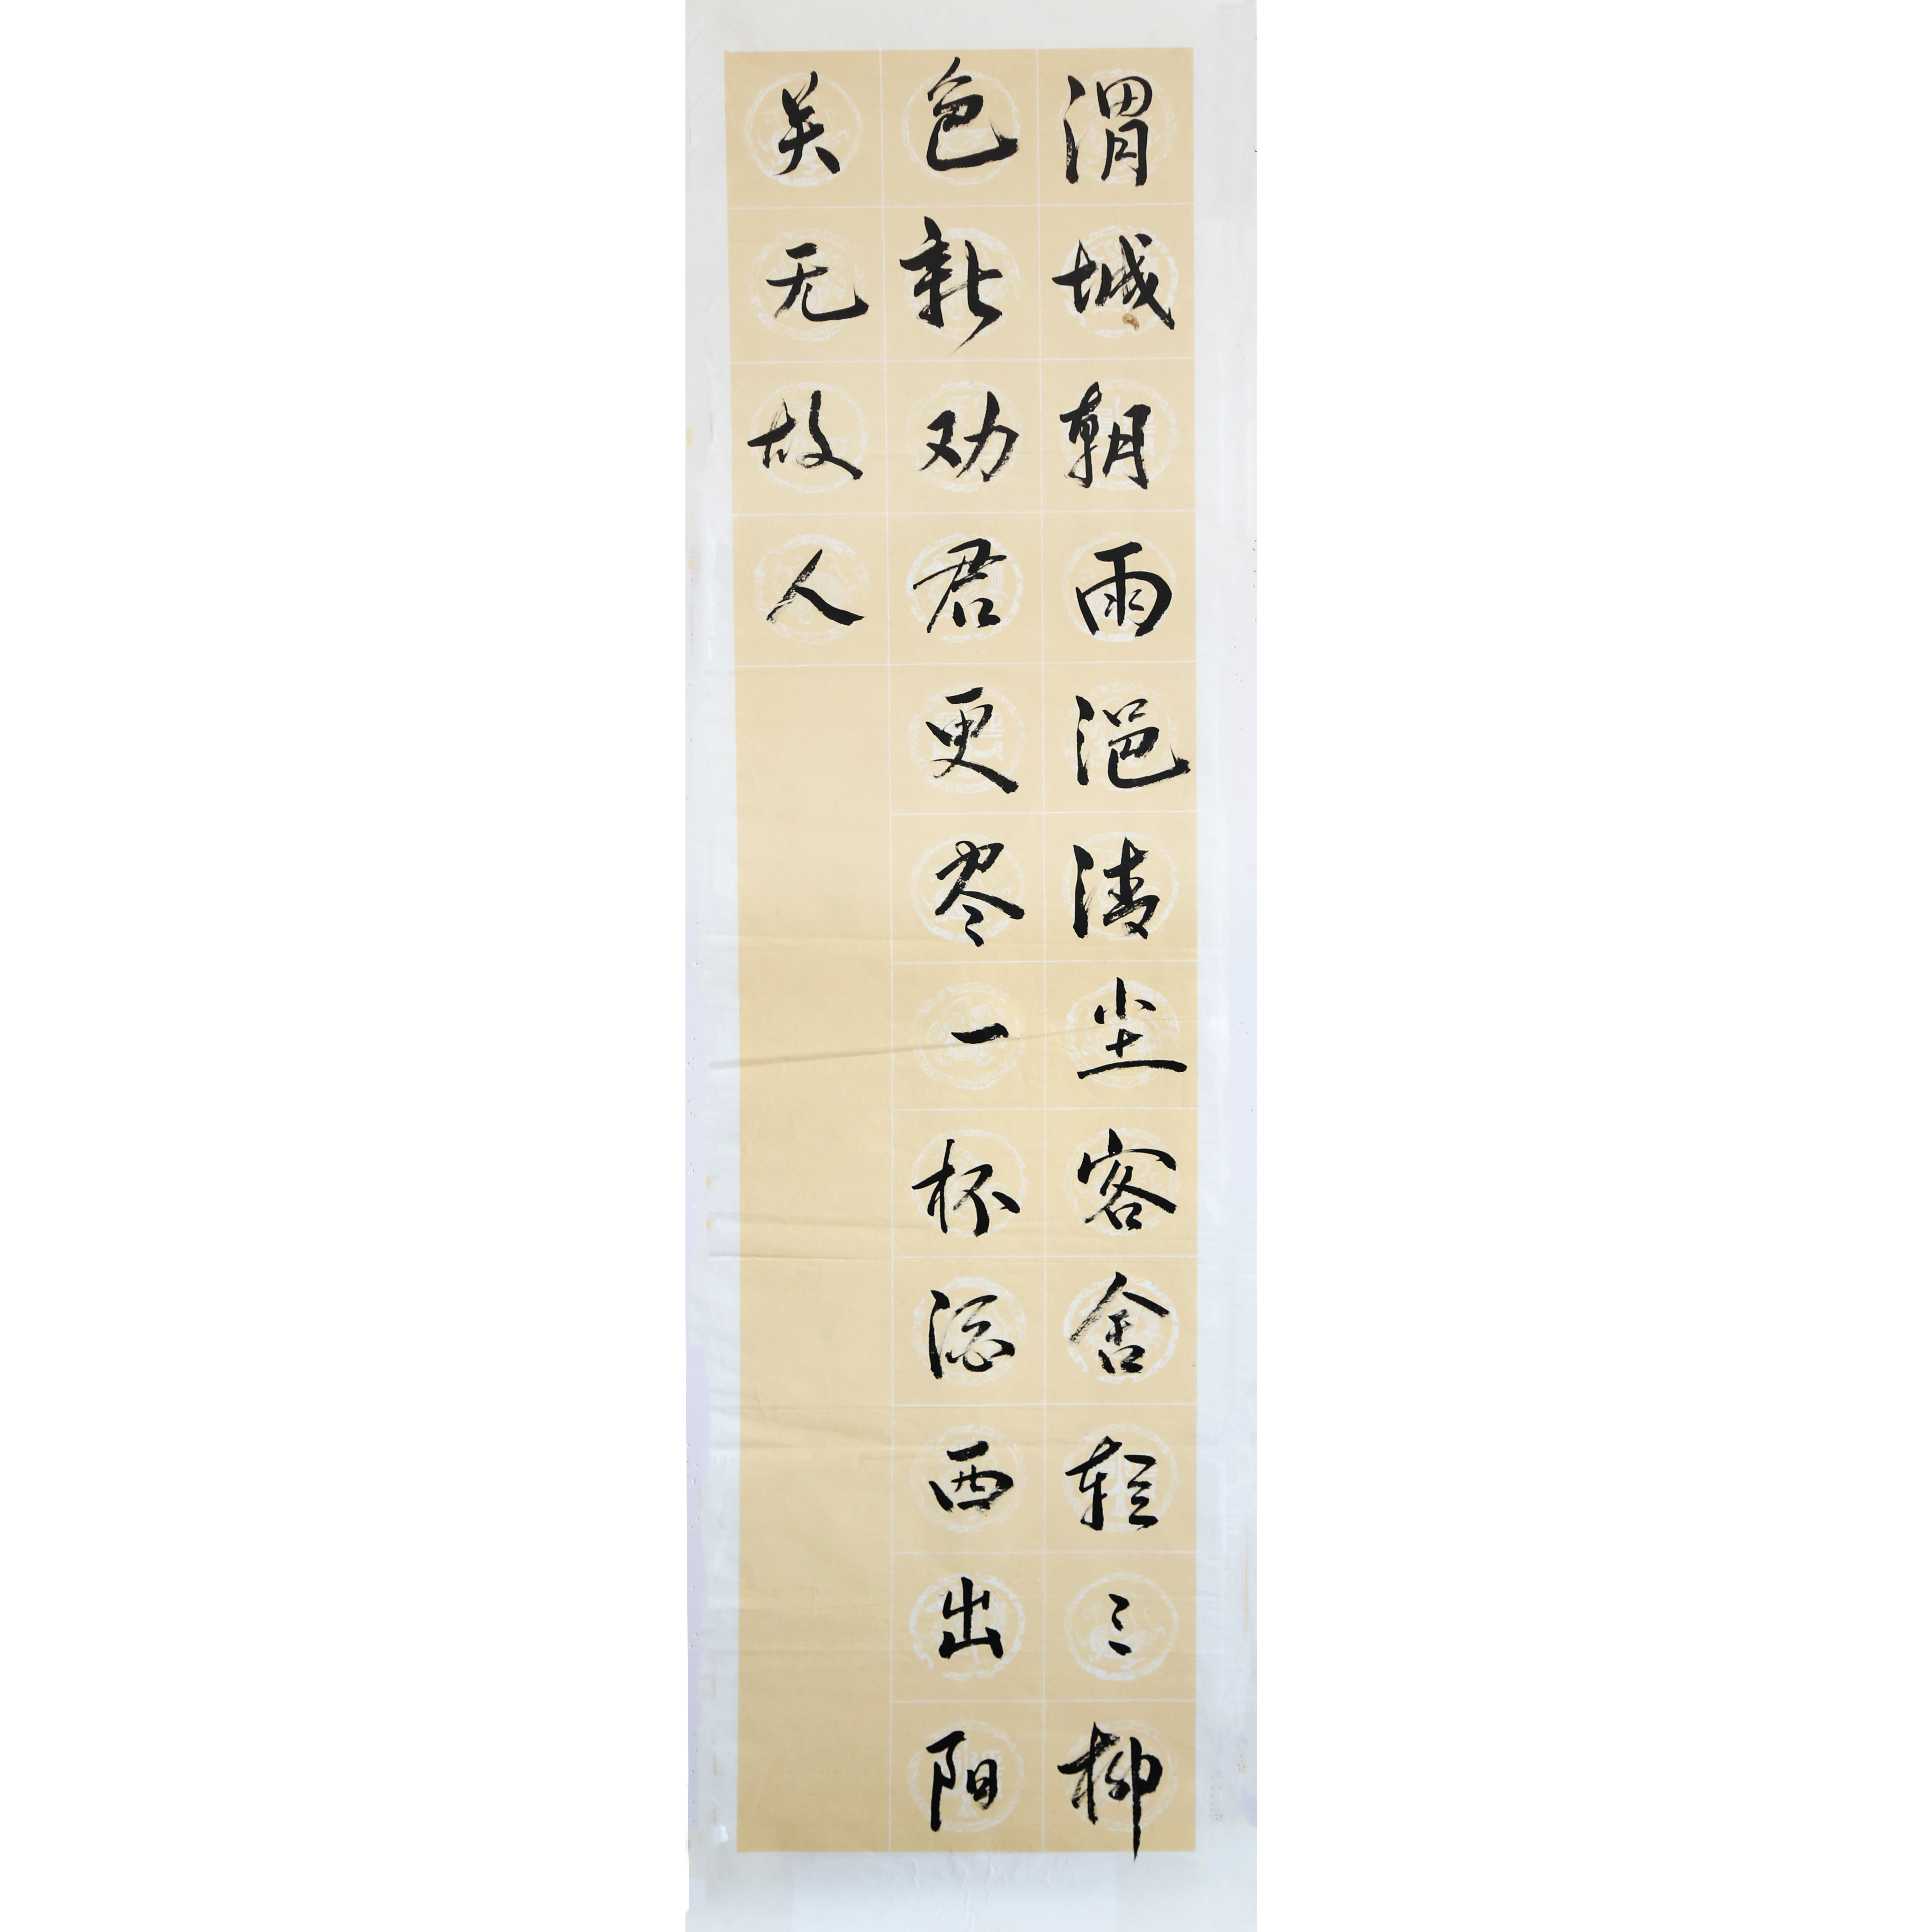 渭城朝雨浥清尘客舍轻々柳
色新劝君更尽一杯酒西出阳
关无故人